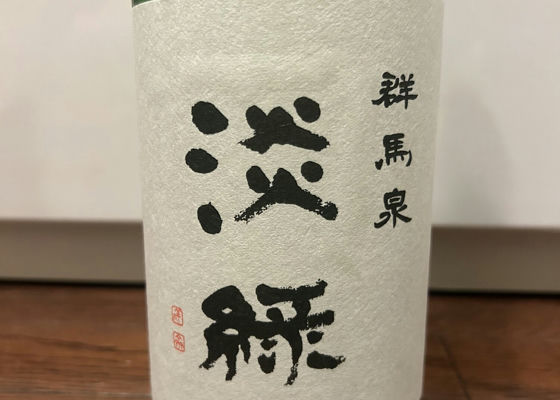 群馬泉
淡緑